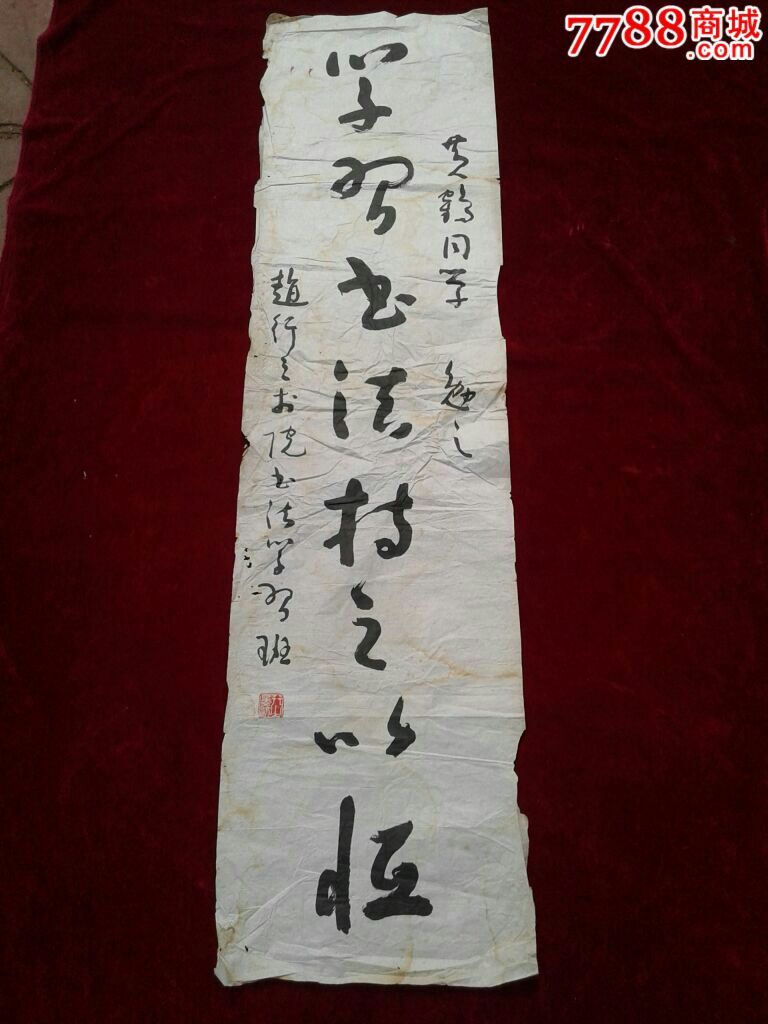 7788商城
.com
黄鹤同学 勉之
学习书法持之以恒
赵行之于院书法学习班